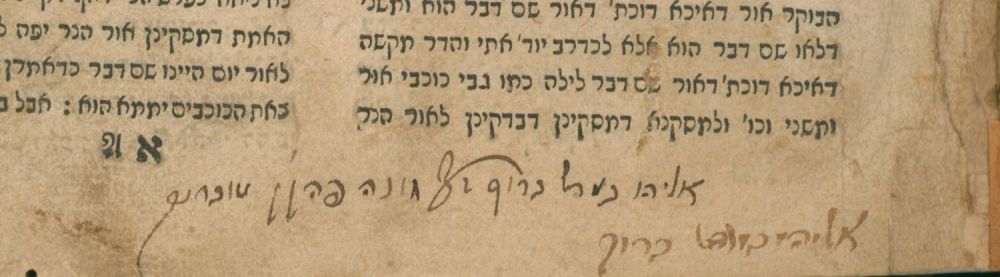 הבוקר אור דאיכא דוכת' דאור שם דבר הוא ומשני
דלאו שם דבר הוא אלא לכדרב יוד' אתי והדר מקשה
דאיכא דוכת' דאור שם דבר לילה כמו גבי כוכבי אור
ומשני וכו' ולמסקנא דמסקינן דבדקינן לאור הנר
האמת דמסקינן אור הנר יפה ל
לאור יום היינו שם דבר כדאמרן
צאת הכוכבים יממא הוא : אבל ב
א
אליהו ברוך חונה פה
אליהו ברוך